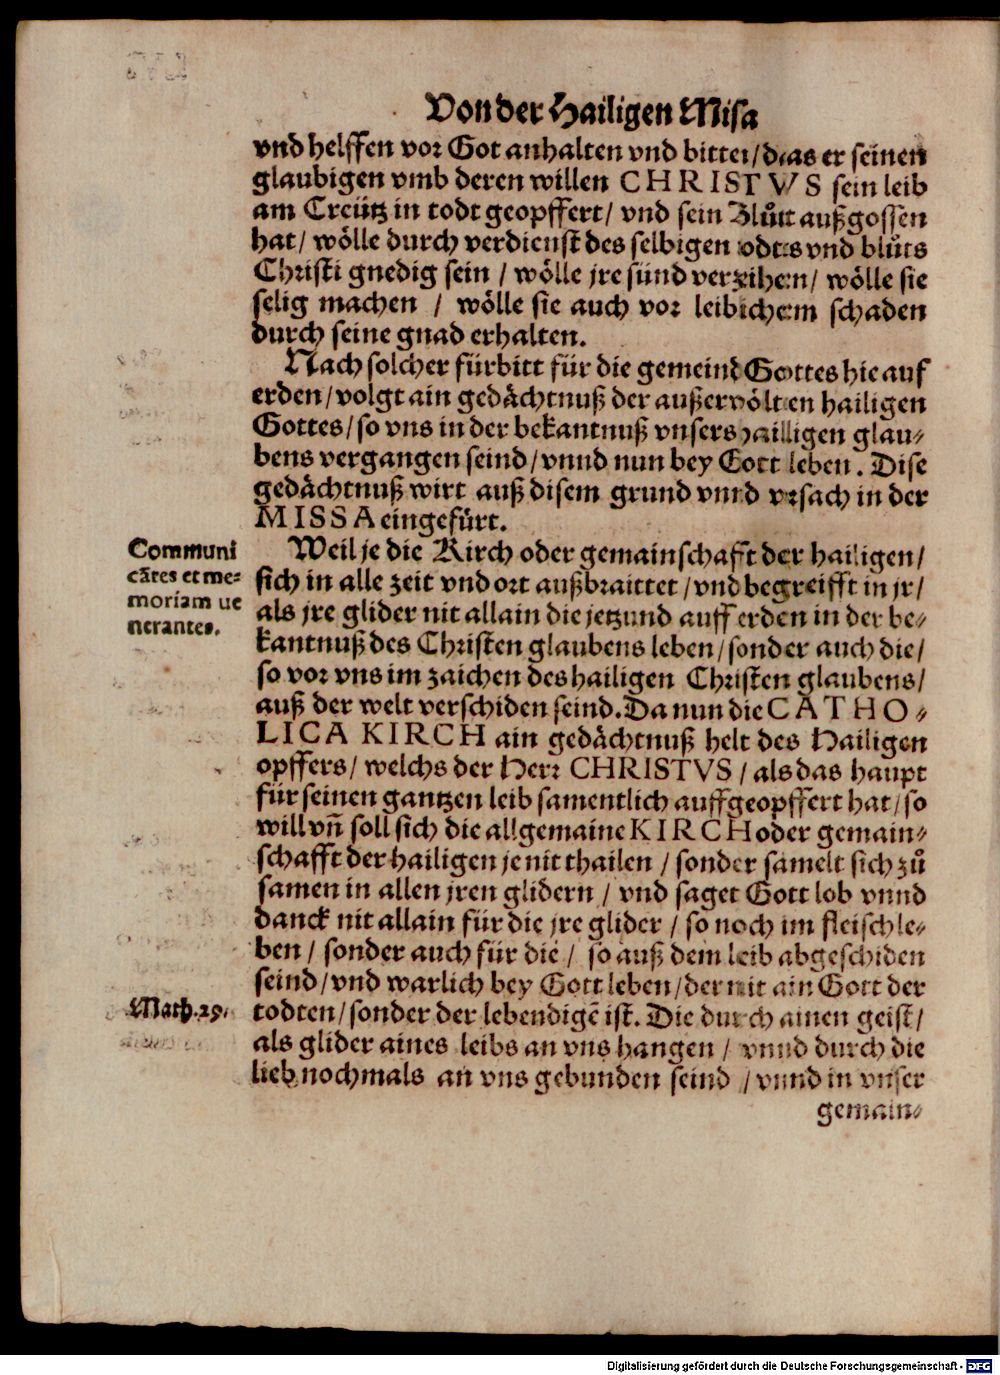 Von der Hailigen Misa
vnd helffen vor Got anhalten vnd bitten/das er seinen
glaubigen vmb deren willen CHRISTVS sein leib
am Creütz in todt geopffert/ vnd sein Blůtt außgossen
hat/ wölle durch verdienst des selbigen todts vnd blůts
Christi gnedig sein / wölle jre sünd verzeihen/ wölle sie
selig machen / wölle sie auch vor leibichem schaden
durch seine gnad erhalten.
Nach solcher fürbitt für die gemeind Gottes hie auf
erden/volgt ain gedächtnuß der außerwölten hailigen
Gottes/so vns in der bekantnuß vnsers hailligen glau-
bens vergangen seind/vnnd nun bey Gott leben. Dise
gedächtnuß wirt auß disem grund vnnd vrsach in der
MISSA eingefürt.
Communi
cātes et me-
moriam ue
nerantes.
Weil je die Kirch oder gemainschafft der hailigen/
sich in alle zeit vnd ort außbraittet/vnd begreifft in jr/
als jre glider nit allain die jetzund auff erden in der be-
kantnuß des Christen glaubens leben/sonder auch die/
so vor vns im zaichen des hailigen Christen glaubens/
auß der welt verschiden seind. Da nun die CATHO-
LICA KIRCH ain gedächtnuß helt des Hailigen
opffers/ welchs der Herr CHRISTVS/ als das haupt
für seinen gantzen leib samentlich auffgeopffert hat/so
will vñ soll sich die allgemaine KIRCH oder gemain-
schafft der hailigen je nit thailen / sonder samelt sich zů
samen in allen jren glidern / vnd saget Gott lob vnnd
danck nit allain für die jre glider / so noch im fleisch le-
ben / sonder auch für die / so auß dem leib abgeschiden
seind/vnd warlich bey Gott leben/der nit ain Gott der
Math.29.
todten/sonder der lebendigē ist. Die durch ainen geist/
als glider aines leibs an vns hangen / vnnd durch die
lieb nochmals an vns gebunden seind / vnnd in vnser
gemain-
Digitalisierung gefördert durch die Deutsche Forschungsgemeinschaft - DFG